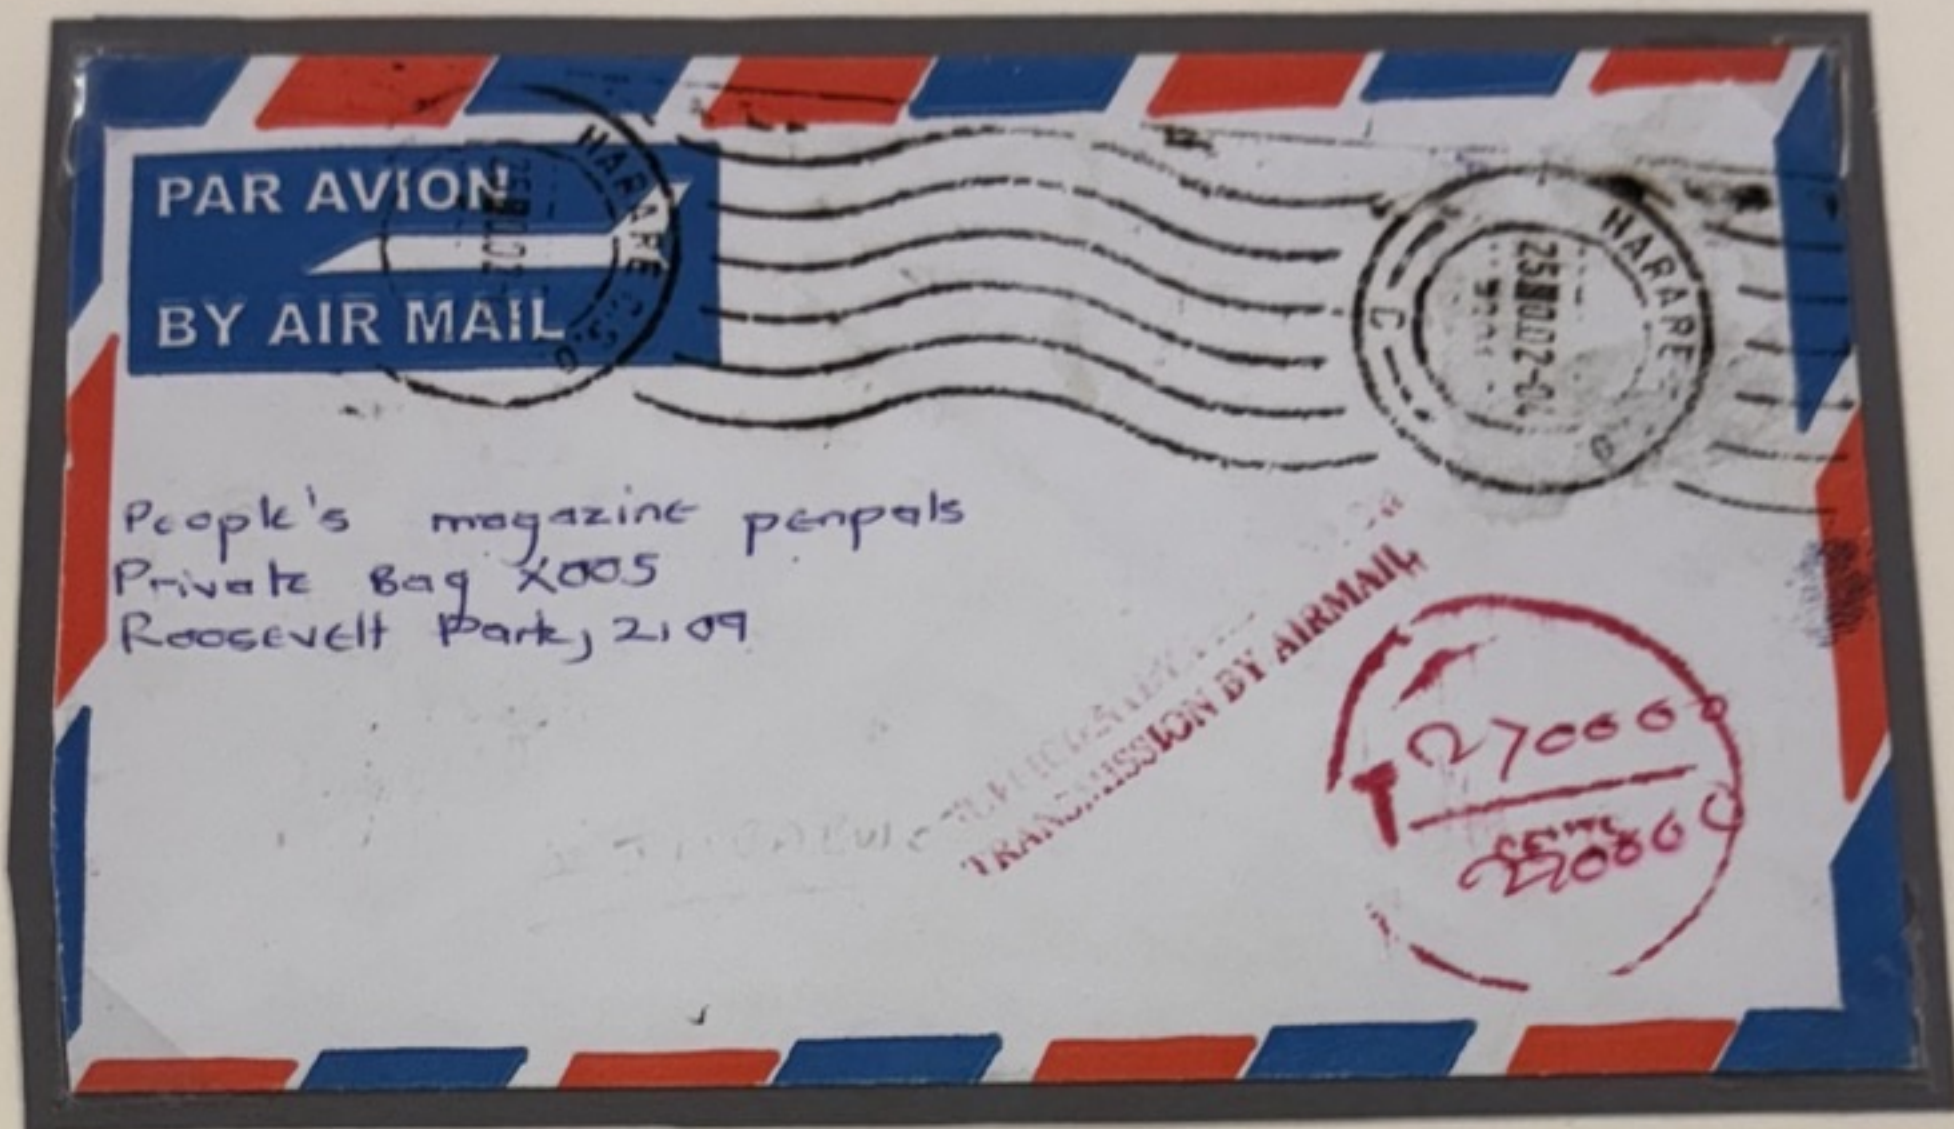 PAR AVION
BY AIR MAIL
HARARE C.S.O
HARARE
People's magazine penpals
Private Bag X005
Roosevelt Park, 2109
TRANSMISSION BY AIRMAIL
T 27000
27000